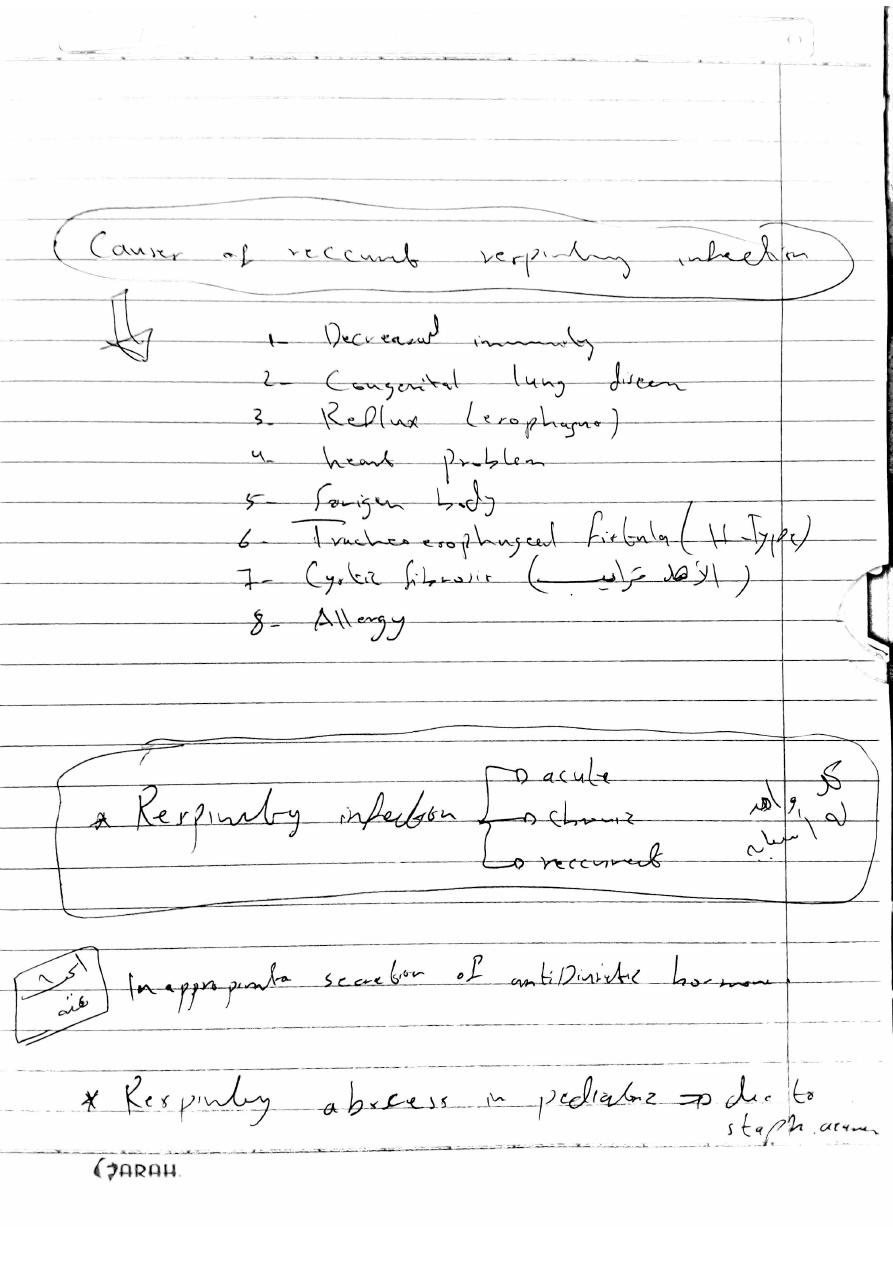 Causes of reccurent respiratory infection
1- Decreased immunity
2- Congenital lung disease
3- Reflux (esophagus)
4- heart problem
5- Foriegn body
6- Tracheo esophageal fistula (H-Type)
7- Cystic fibrosis (الأهل قرايب)
8- Allergy
* Respiratory infection
acute
chronic
reccurrent
كل واحد
له اسبابه
Inappropriate secretion of antiDiuretic hormone.
* Respiratory abscess in pediatric ⇒ due to
staph. aureus
SARAH